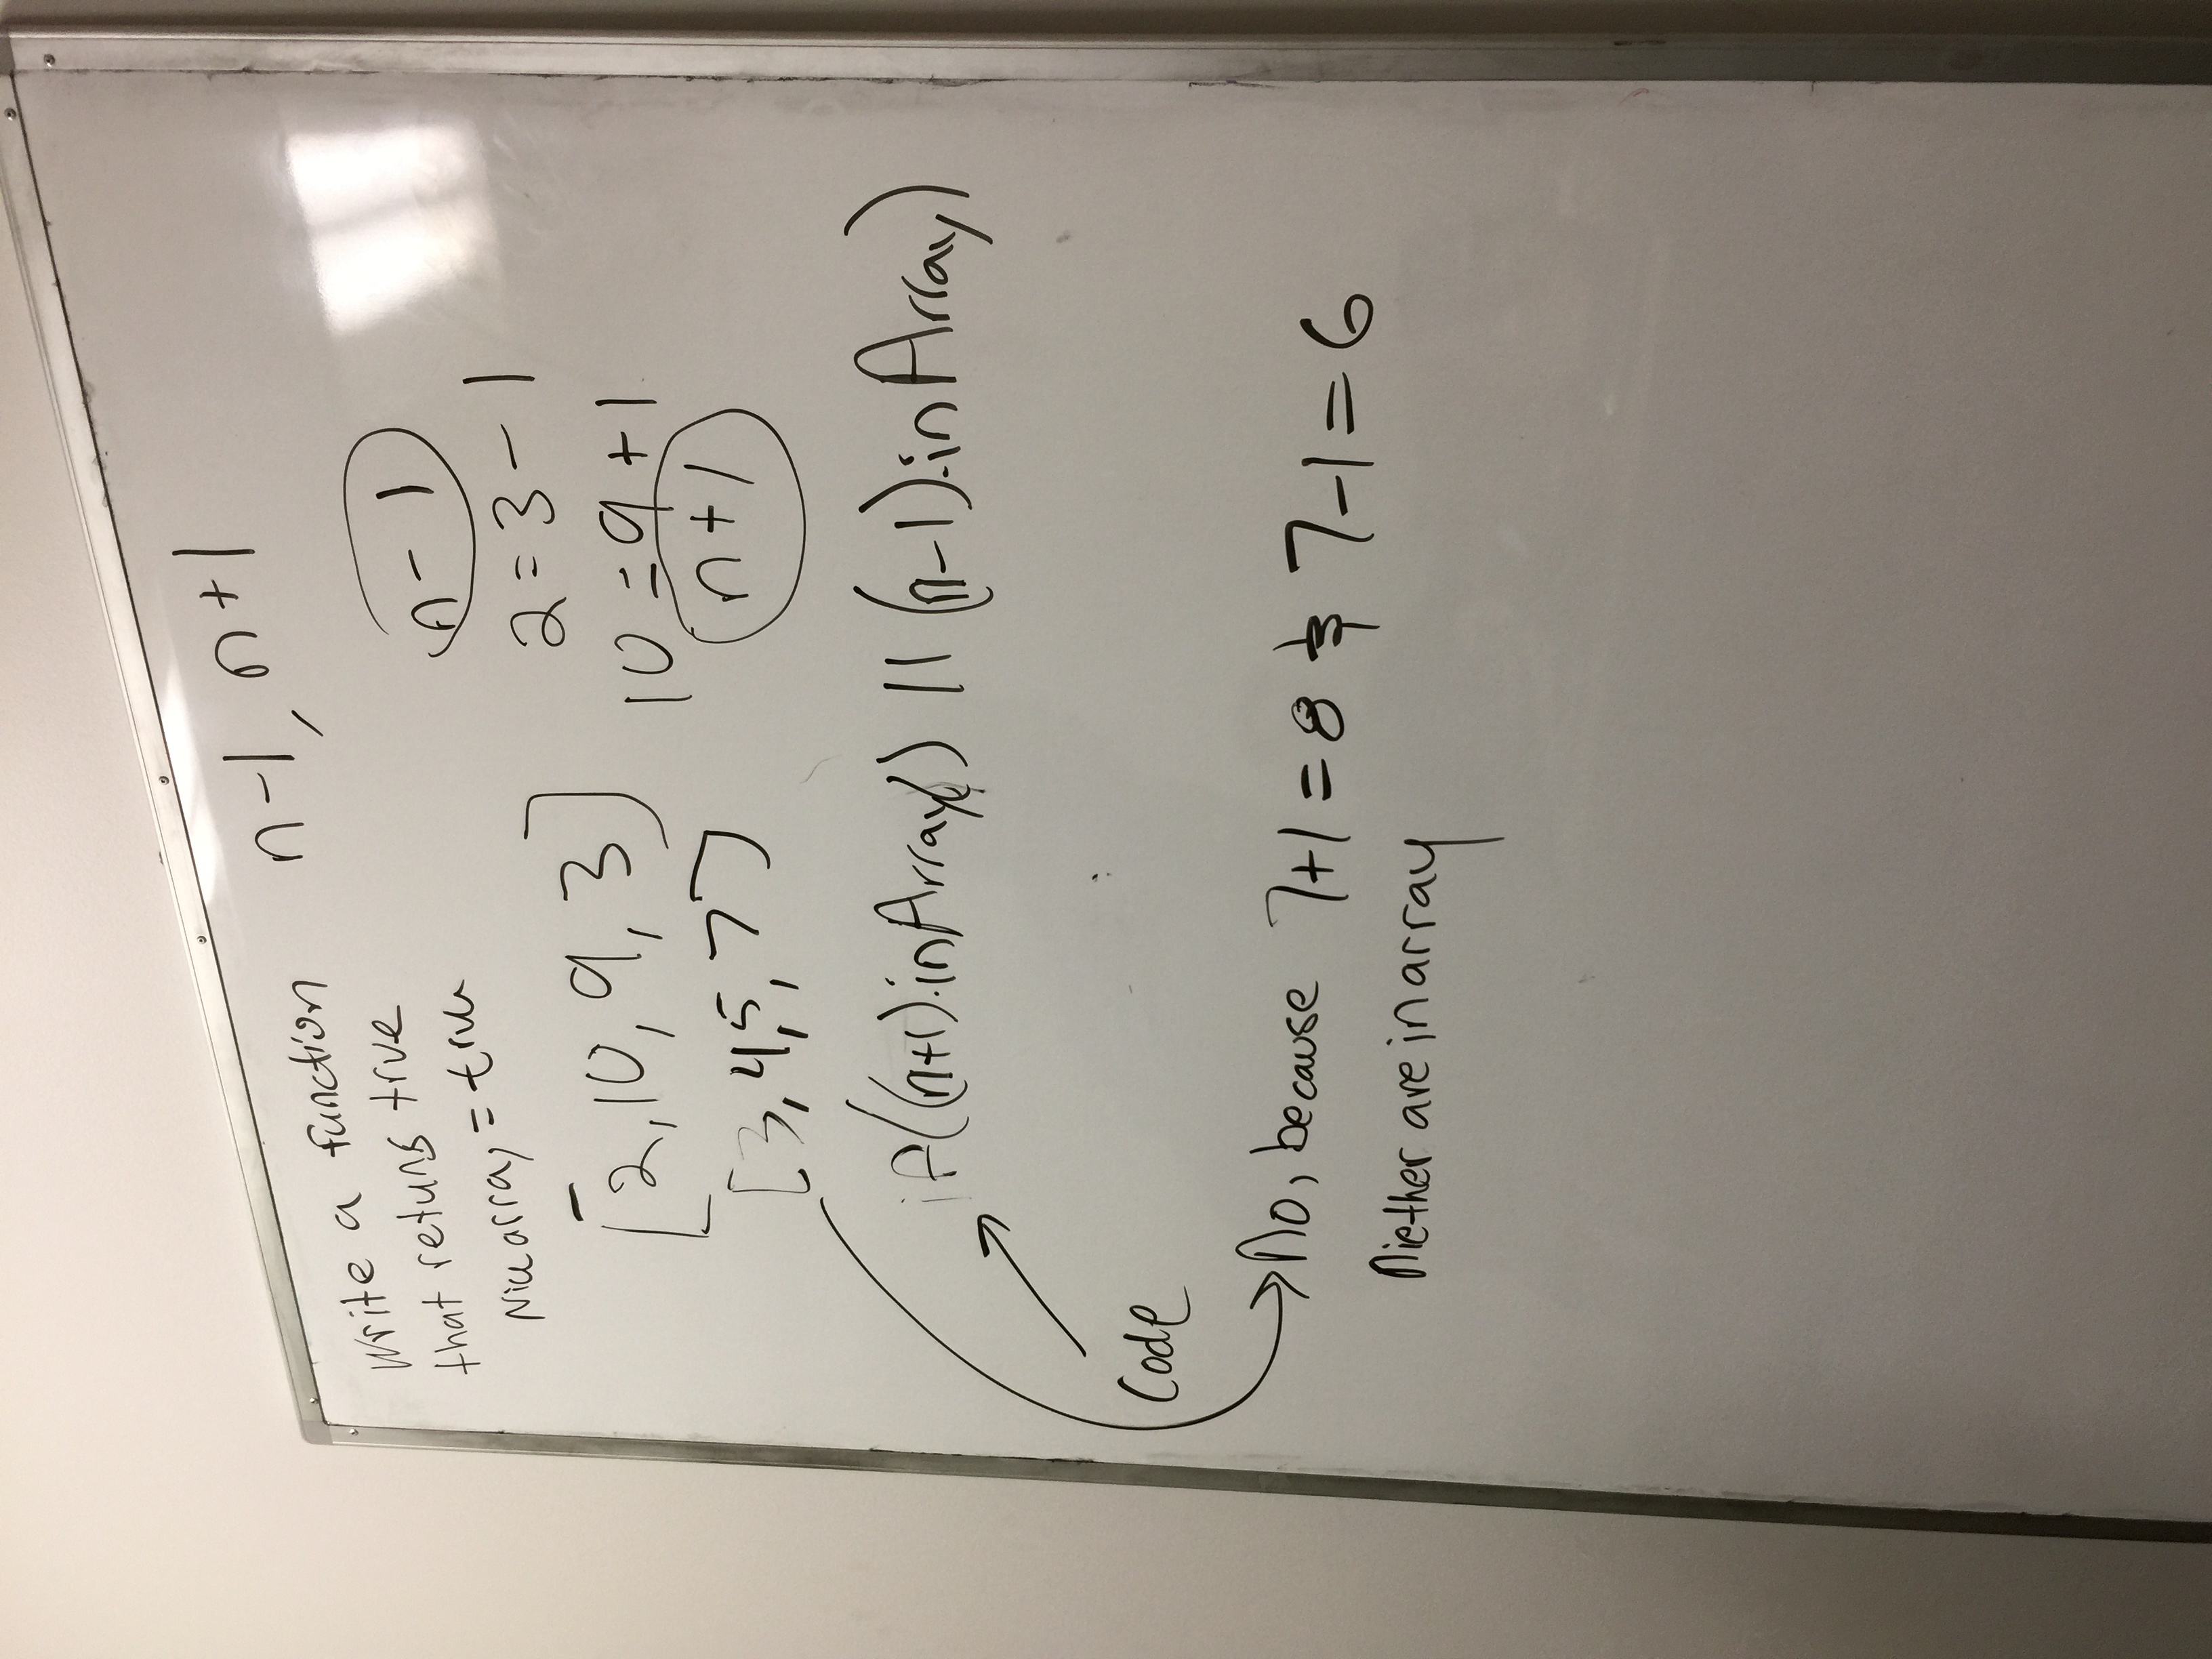 n-1, n+1
Write a function
that retuns true
Nice array = true
n-1
[2,10,9,3]
2=3-1
10=9+1
[3,4,5,7]
n+1
if((n+1).inArray() || (n-1).inArray)
Code
No, because 7+1=8 & 7-1=6
Niether are in array